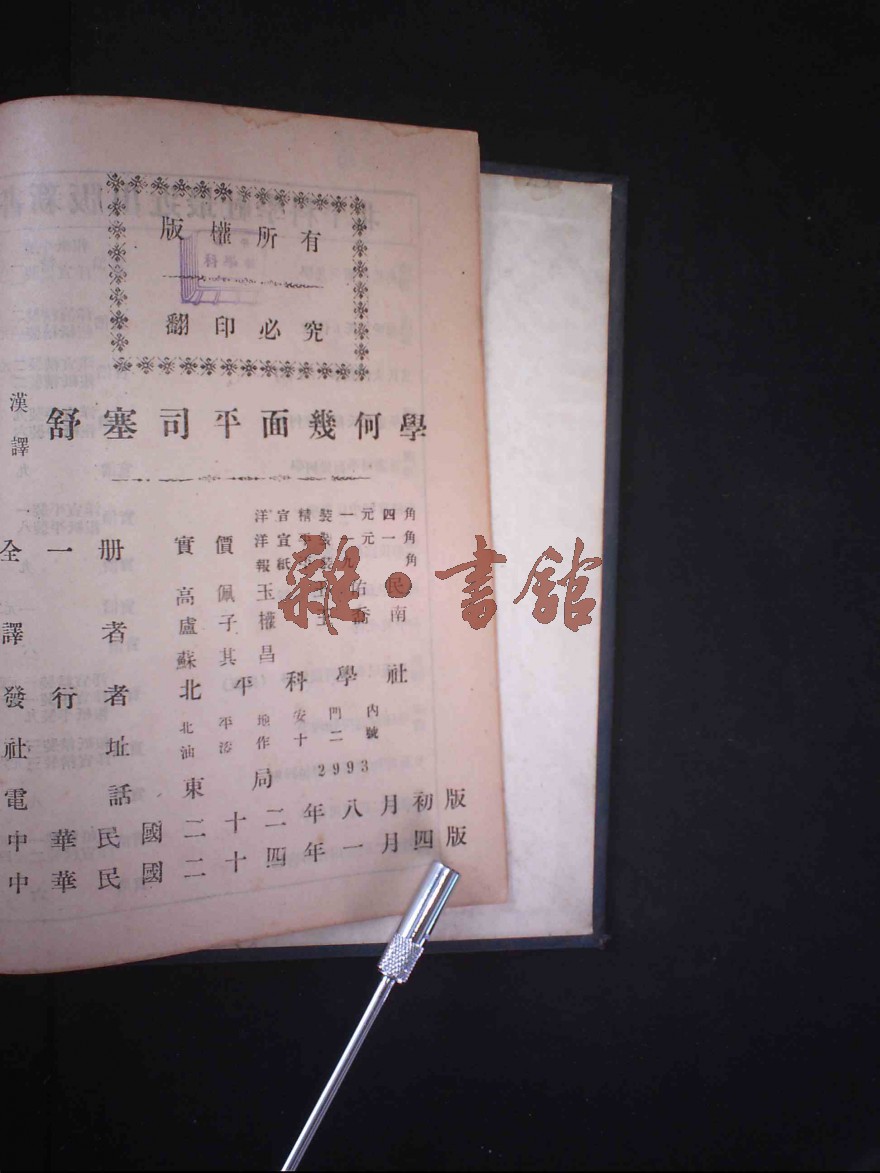 版權所有
科學社
翻印必究
漢譯 舒塞司平面幾何學
洋宣精裝一元四角
全一册 實價 洋宣平裝一元一角
報紙平裝九角
高佩玉 佑民
譯者 盧子權 王喬南
蘇其昌
發行者 北平科學社
社址 北平地安門內
油漆作十二號
電話 東局 2993
中華民國二十二年八月初版
中華民國二十四年一月四版
雜·書館